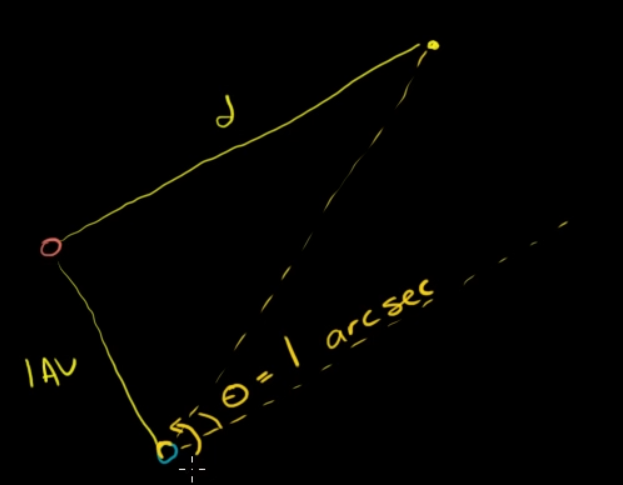 d
1 AU
θ = 1 arcsec